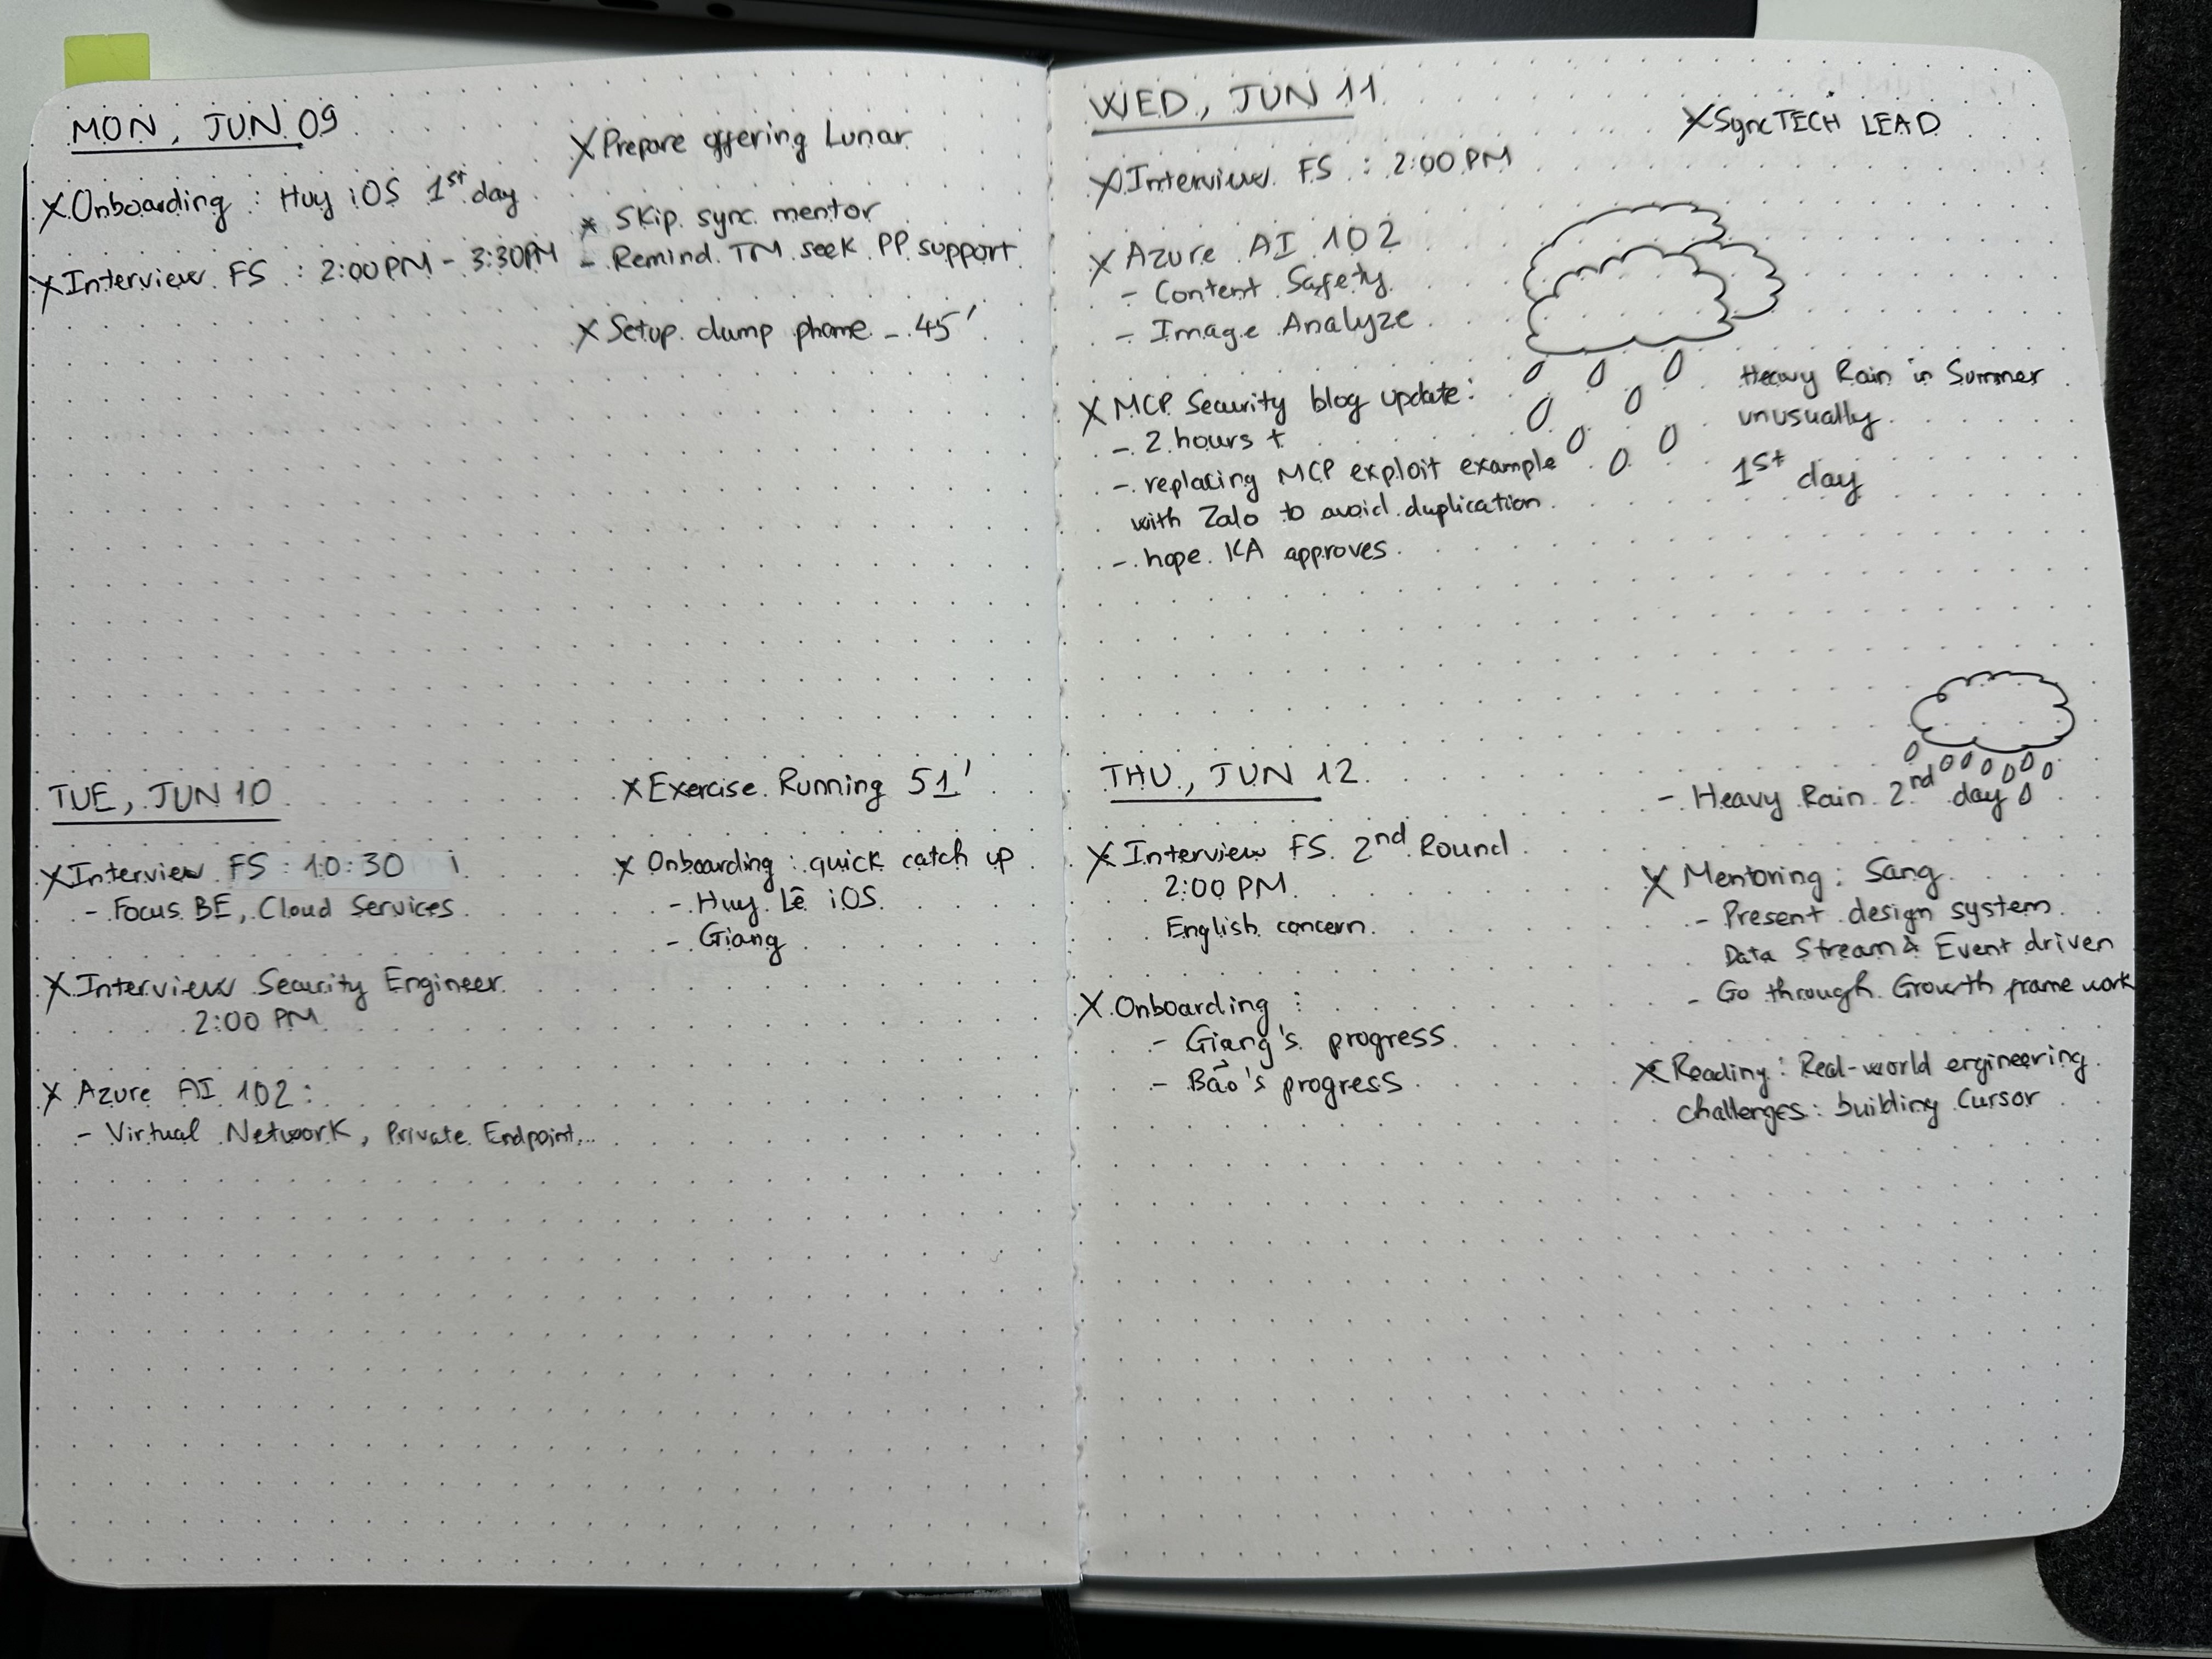 MON, JUN 09
X Onboarding : Huy iOS 1st day
X Interview FS : 2:00 PM - 3:30PM
X Prepare offering Lunar
x Skip sync mentor
- Remind TM seek PP support
X Setup dump phone - 45'
TUE, JUN 10
X Interview FS : 10:30
- Focus BE, Cloud Services
X Interview Security Engineer
2:00 PM
X Azure AI 102:
- Virtual Network, Private Endpoint...
X Exercise Running 51'
X Onboarding : quick catch up
- Huy Lê iOS
- Giang
WED, JUN 11
X Interview FS : 2:00 PM
X Azure AI 102
- Content Safety
- Image Analyze
X MCP Security blog update:
- 2 hours +
- replacing MCP exploit example
with Zalo to avoid duplication
- hope KA approves
X Sync TECH LEAD
Heavy Rain in Summer
unusually
1st day
THU, JUN 12
X Interview FS 2nd Round
2:00 PM
English concern
X Onboarding :
- Giang's progress
- Bảo's progress
- Heavy Rain 2nd day
X Mentoring : Sang
- Present design system
Data Stream & Event driven
- Go through Growth frame work
X Reading : Real-world engineering
challenges : building Cursor